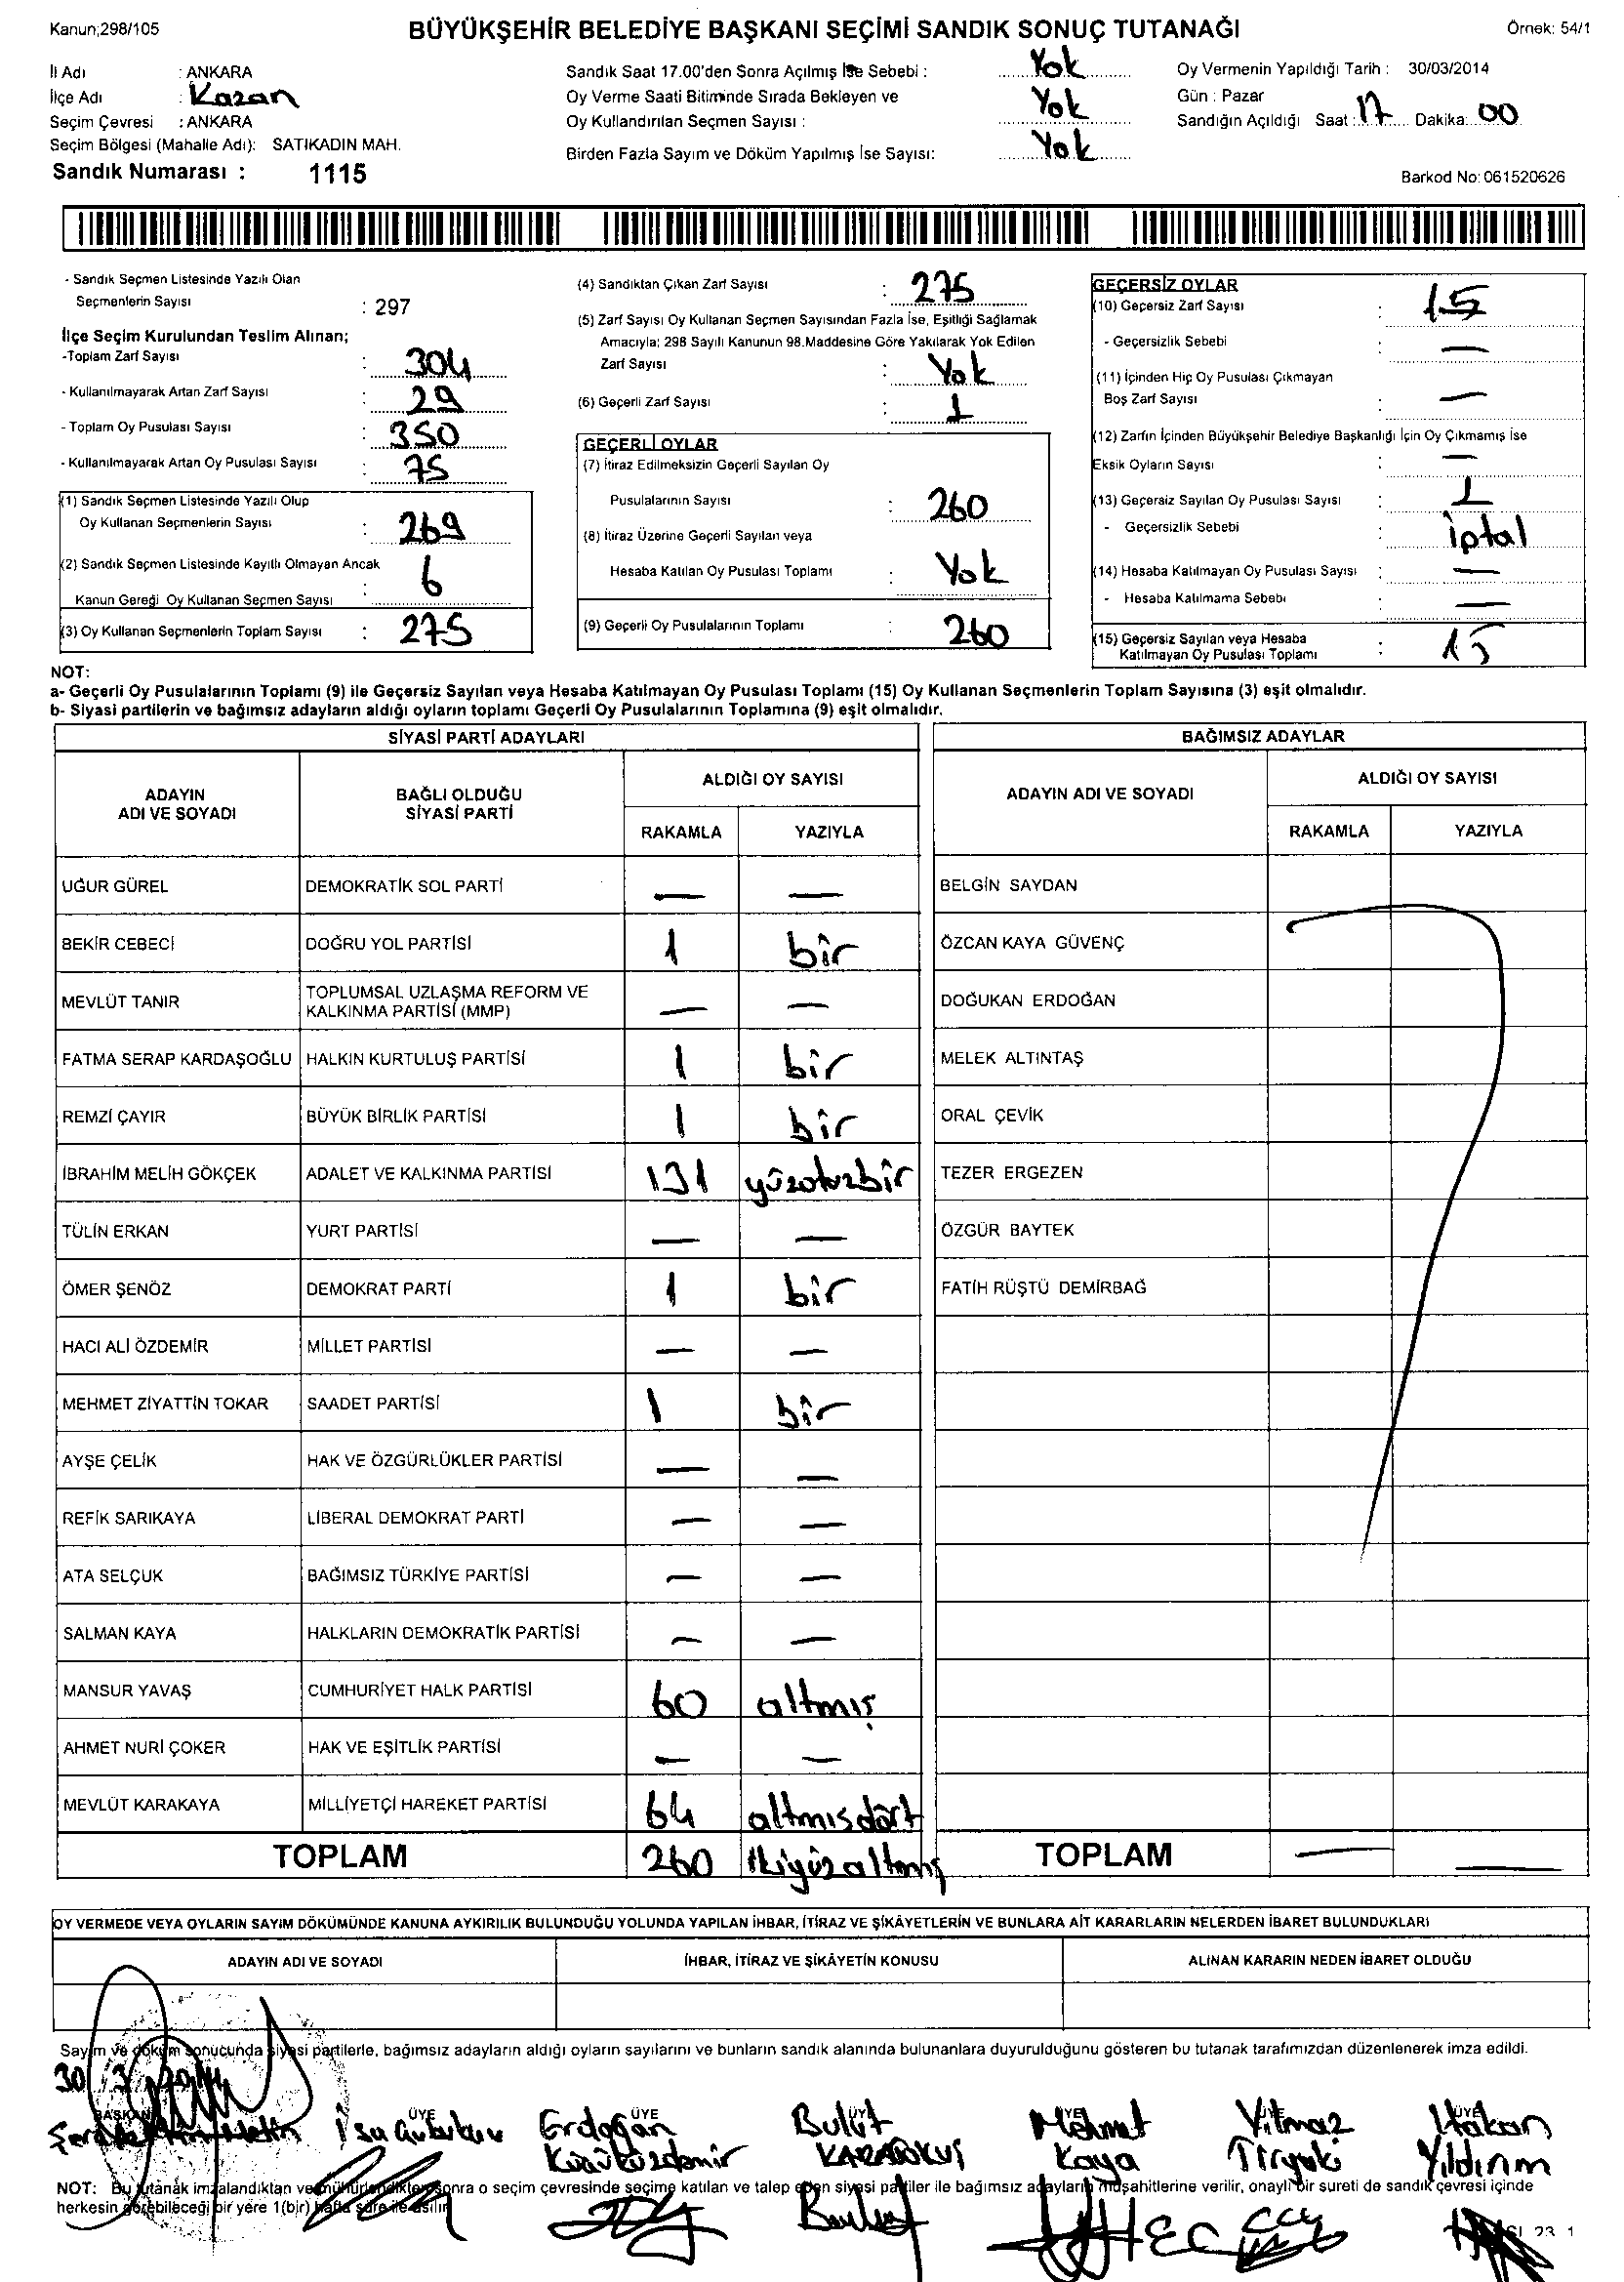 Kanun;298/105
BÜYÜKŞEHİR BELEDİYE BAŞKANI SEÇİMİ SANDIK SONUÇ TUTANAĞI
Örnek: 54/1
İl Adı : ANKARA
İlçe Adı : Kazan
Seçim Çevresi : ANKARA
Seçim Bölgesi (Mahalle Adı): SATIKADIN MAH.
Sandık Numarası : 1115
Sandık Saat 17.00'den Sonra Açılmış İse Sebebi : Yok
Oy Verme Saati Bitiminde Sırada Bekleyen ve
Oy Kullandırılan Seçmen Sayısı : Yok
Birden Fazla Sayım ve Döküm Yapılmış İse Sayısı: Yok
Oy Vermenin Yapıldığı Tarih : 30/03/2014
Gün : Pazar
Sandığın Açıldığı Saat : 17 Dakika: 00
Barkod No: 061520626
- Sandık Seçmen Listesinde Yazılı Olan
Seçmenlerin Sayısı : 297
İlçe Seçim Kurulundan Teslim Alınan;
-Toplam Zarf Sayısı : 304
- Kullanılmayarak Artan Zarf Sayısı : 29
- Toplam Oy Pusulası Sayısı : 350
- Kullanılmayarak Artan Oy Pusulası Sayısı : 75
(1) Sandık Seçmen Listesinde Yazılı Olup
Oy Kullanan Seçmenlerin Sayısı : 269
(2) Sandık Seçmen Listesinde Kayıtlı Olmayan Ancak
Kanun Gereği Oy Kullanan Seçmen Sayısı : 6
(3) Oy Kullanan Seçmenlerin Toplam Sayısı : 275
(4) Sandıktan Çıkan Zarf Sayısı : 275
(5) Zarf Sayısı Oy Kullanan Seçmen Sayısından Fazla İse, Eşitliği Sağlamak
Amacıyla; 298 Sayılı Kanunun 98.Maddesine Göre Yakılarak Yok Edilen
Zarf Sayısı : Yok
(6) Geçerli Zarf Sayısı : 1
GEÇERLİ OYLAR
(7) İtiraz Edilmeksizin Geçerli Sayılan Oy
Pusulalarının Sayısı : 260
(8) İtiraz Üzerine Geçerli Sayılan veya
Hesaba Katılan Oy Pusulası Toplamı : Yok
(9) Geçerli Oy Pusulalarının Toplamı : 260
GEÇERSİZ OYLAR
(10) Geçersiz Zarf Sayısı : 15
- Geçersizlik Sebebi : —
(11) İçinden Hiç Oy Pusulası Çıkmayan
Boş Zarf Sayısı : —
(12) Zarfın İçinden Büyükşehir Belediye Başkanlığı İçin Oy Çıkmamış İse
Eksik Oyların Sayısı : —
(13) Geçersiz Sayılan Oy Pusulası Sayısı : 1
- Geçersizlik Sebebi : iptal
(14) Hesaba Katılmayan Oy Pusulası Sayısı : —
- Hesaba Katılmama Sebebi : —
(15) Geçersiz Sayılan veya Hesaba
Katılmayan Oy Pusulası Toplamı : 15
NOT:
a- Geçerli Oy Pusulalarının Toplamı (9) ile Geçersiz Sayılan veya Hesaba Katılmayan Oy Pusulası Toplamı (15) Oy Kullanan Seçmenlerin Toplam Sayısına (3) eşit olmalıdır.
b- Siyasi partilerin ve bağımsız adayların aldığı oyların toplamı Geçerli Oy Pusulalarının Toplamına (9) eşit olmalıdır.
SİYASİ PARTİ ADAYLARI
ADAYIN ADI VE SOYADI BAĞLI OLDUĞU SİYASİ PARTİ ALDIĞI OY SAYISI
RAKAMLA YAZIYLA
UĞUR GÜREL DEMOKRATİK SOL PARTİ — —
BEKİR CEBECİ DOĞRU YOL PARTİSİ 1 bir
MEVLÜT TANIR TOPLUMSAL UZLAŞMA REFORM VE KALKINMA PARTİSİ (MMP) — —
FATMA SERAP KARDAŞOĞLU HALKIN KURTULUŞ PARTİSİ 1 bir
REMZİ ÇAYIR BÜYÜK BİRLİK PARTİSİ 1 bir
İBRAHİM MELİH GÖKÇEK ADALET VE KALKINMA PARTİSİ 131 yüzotuzbir
TÜLİN ERKAN YURT PARTİSİ — —
ÖMER ŞENÖZ DEMOKRAT PARTİ 1 bir
HACI ALİ ÖZDEMİR MİLLET PARTİSİ — —
MEHMET ZİYATTİN TOKAR SAADET PARTİSİ 1 bir
AYŞE ÇELİK HAK VE ÖZGÜRLÜKLER PARTİSİ — —
REFİK SARIKAYA LİBERAL DEMOKRAT PARTİ — —
ATA SELÇUK BAĞIMSIZ TÜRKİYE PARTİSİ — —
SALMAN KAYA HALKLARIN DEMOKRATİK PARTİSİ — —
MANSUR YAVAŞ CUMHURİYET HALK PARTİSİ 60 altmış
AHMET NURİ ÇOKER HAK VE EŞİTLİK PARTİSİ — —
MEVLÜT KARAKAYA MİLLİYETÇİ HAREKET PARTİSİ 64 altmışdört
TOPLAM 260 ikiyüzaltmış
BAĞIMSIZ ADAYLAR
ADAYIN ADI VE SOYADI ALDIĞI OY SAYISI
RAKAMLA YAZIYLA
BELGİN SAYDAN
ÖZCAN KAYA GÜVENÇ
DOĞUKAN ERDOĞAN
MELEK ALTINTAŞ
ORAL ÇEVİK
TEZER ERGEZEN
ÖZGÜR BAYTEK
FATİH RÜŞTÜ DEMİRBAĞ
TOPLAM — —
OY VERMEDE VEYA OYLARIN SAYIM DÖKÜMÜNDE KANUNA AYKIRILIK BULUNDUĞU YOLUNDA YAPILAN İHBAR, İTİRAZ VE ŞİKÂYETLERİN VE BUNLARA AİT KARARLARIN NELERDEN İBARET BULUNDUKLARI
ADAYIN ADI VE SOYADI İHBAR, İTİRAZ VE ŞİKÂYETİN KONUSU ALINAN KARARIN NEDEN İBARET OLDUĞU
Sayım ve döküm sonucunda siyasi partilerle, bağımsız adayların aldığı oyların sayılarını ve bunların sandık alanında bulunanlara duyurulduğunu gösteren bu tutanak tarafımızdan düzenlenerek imza edildi.
30/3/2014
BAŞKAN ÜYE ÜYE ÜYE ÜYE ÜYE ÜYE
Metin İsa Erdoğan Bulut Mehmet Yılmaz Hakan
KARAKUŞ Kaya Tiryaki Yıldırım
NOT: Bu tutanak imzalandıktan ve mühürlendikten sonra o seçim çevresinde seçime katılan ve talep eden siyasi partiler ile bağımsız adayların müşahitlerine verilir, onaylı bir sureti de sandık çevresi içinde
herkesin görebileceği bir yere 1(bir) hafta süre ile asılır.